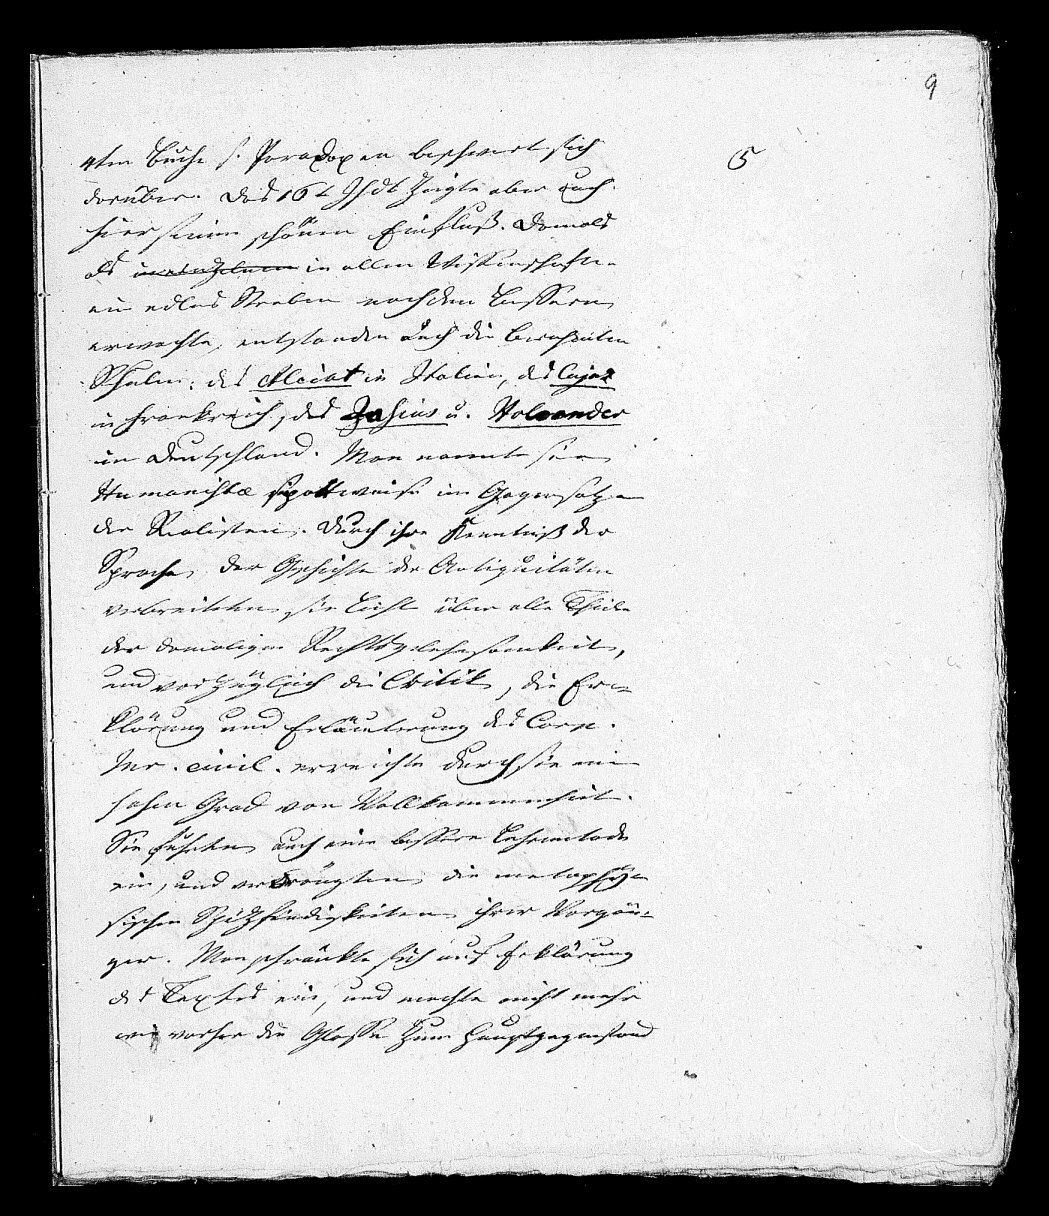 9
5
4ten Buche s. Paradoxen beschwert sich
darüber. Das 16t Jhdt zeigte aber auch
hier seinen schönen Einfluß. Damals
als in allen Wissenschaften
ein edles Streben nach dem Bessern
erwachte, entstanden auch die berühmten
Schulen: des Alciat in Italien, des Cujaz
in Frankreich, des Zasius u. Haloander
in Deutschland. Man nannte sie
Humanistae spottweise im Gegensatze
der Realisten. Durch ihre Kenntniß der
Sprache, der Geschichte der Antiquitäten
verbreiteten sie Licht über alle Theile
der damaligen Rechtsgelehrsamkeit,
und vorzüglich die Critik, die Er-
klärung und Erläuterung des Corp.
Jur. civil. erreichte durch sie ein
hohen Grad von Vollkommenheit.
Sie führten auch eine bessere Lehrmetode
ein, und verdrängten die metaphy-
sischen Spitzfindigkeiten ihrer Vorgän-
ger. Man schränkte sich auf Erklärung
des Textes ein, und machte nicht mehr
wie vorher die Glosse zum Hauptgegenstand